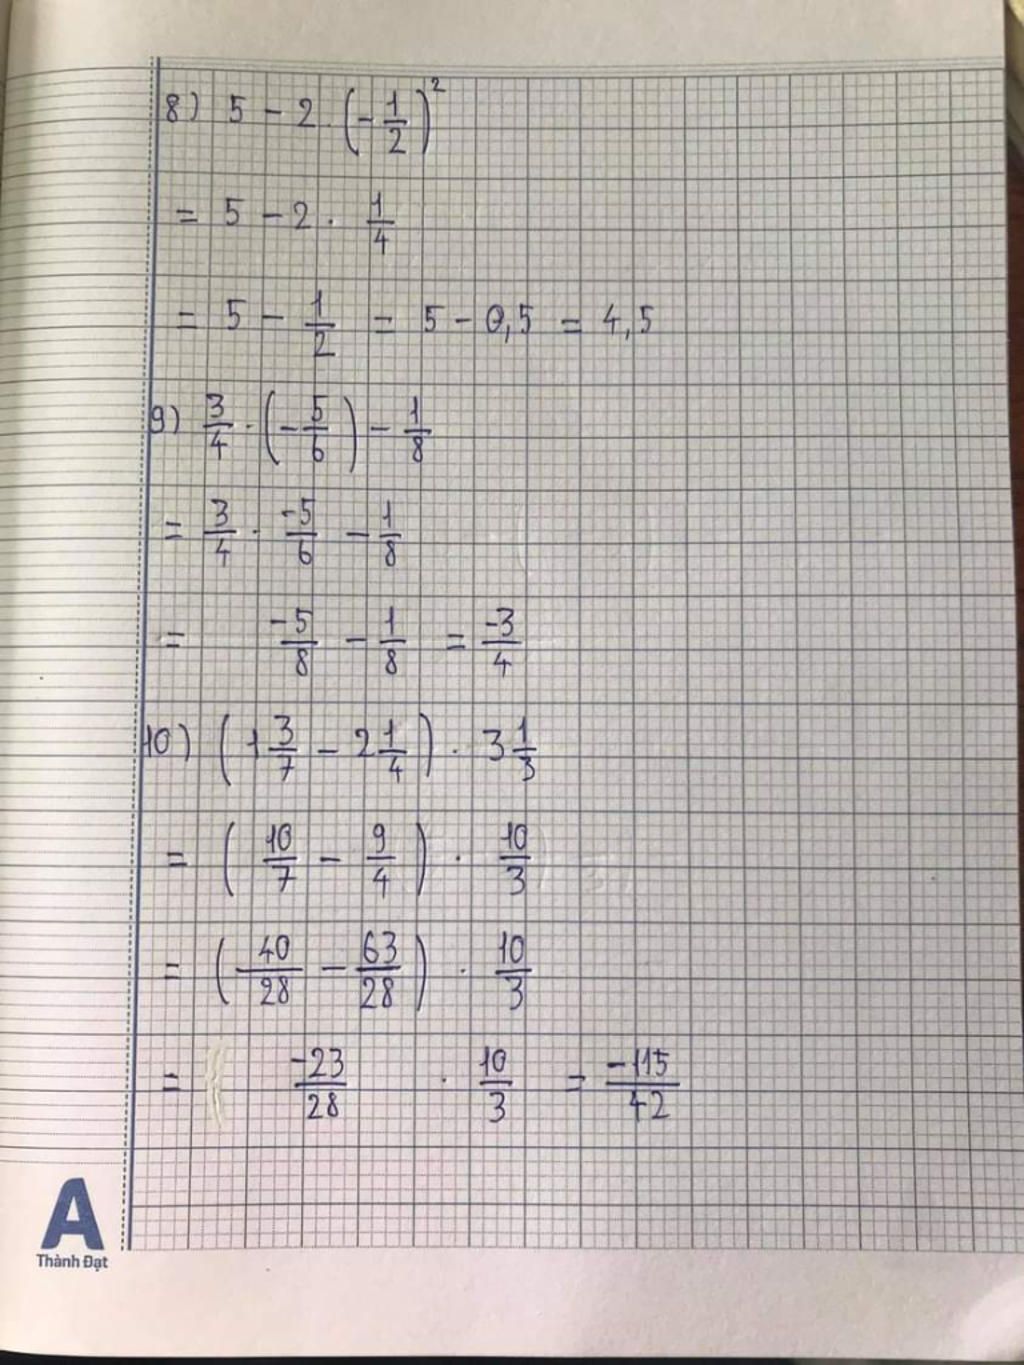 8) 5 - 2 . (-1/2)²
= 5 - 2 . 1/4
= 5 - 1/2 = 5 - 0,5 = 4,5
9) 3/4 . (-5/6) - 1/8
= 3/4 . -5/6 - 1/8
= -5/8 - 1/8 = -3/4
10) (1 3/7 - 2 1/4) . 3 1/3
= (10/7 - 9/4) . 10/3
= (40/28 - 63/28) . 10/3
= -23/28 . 10/3 = -115/42
A
Thành Đạt